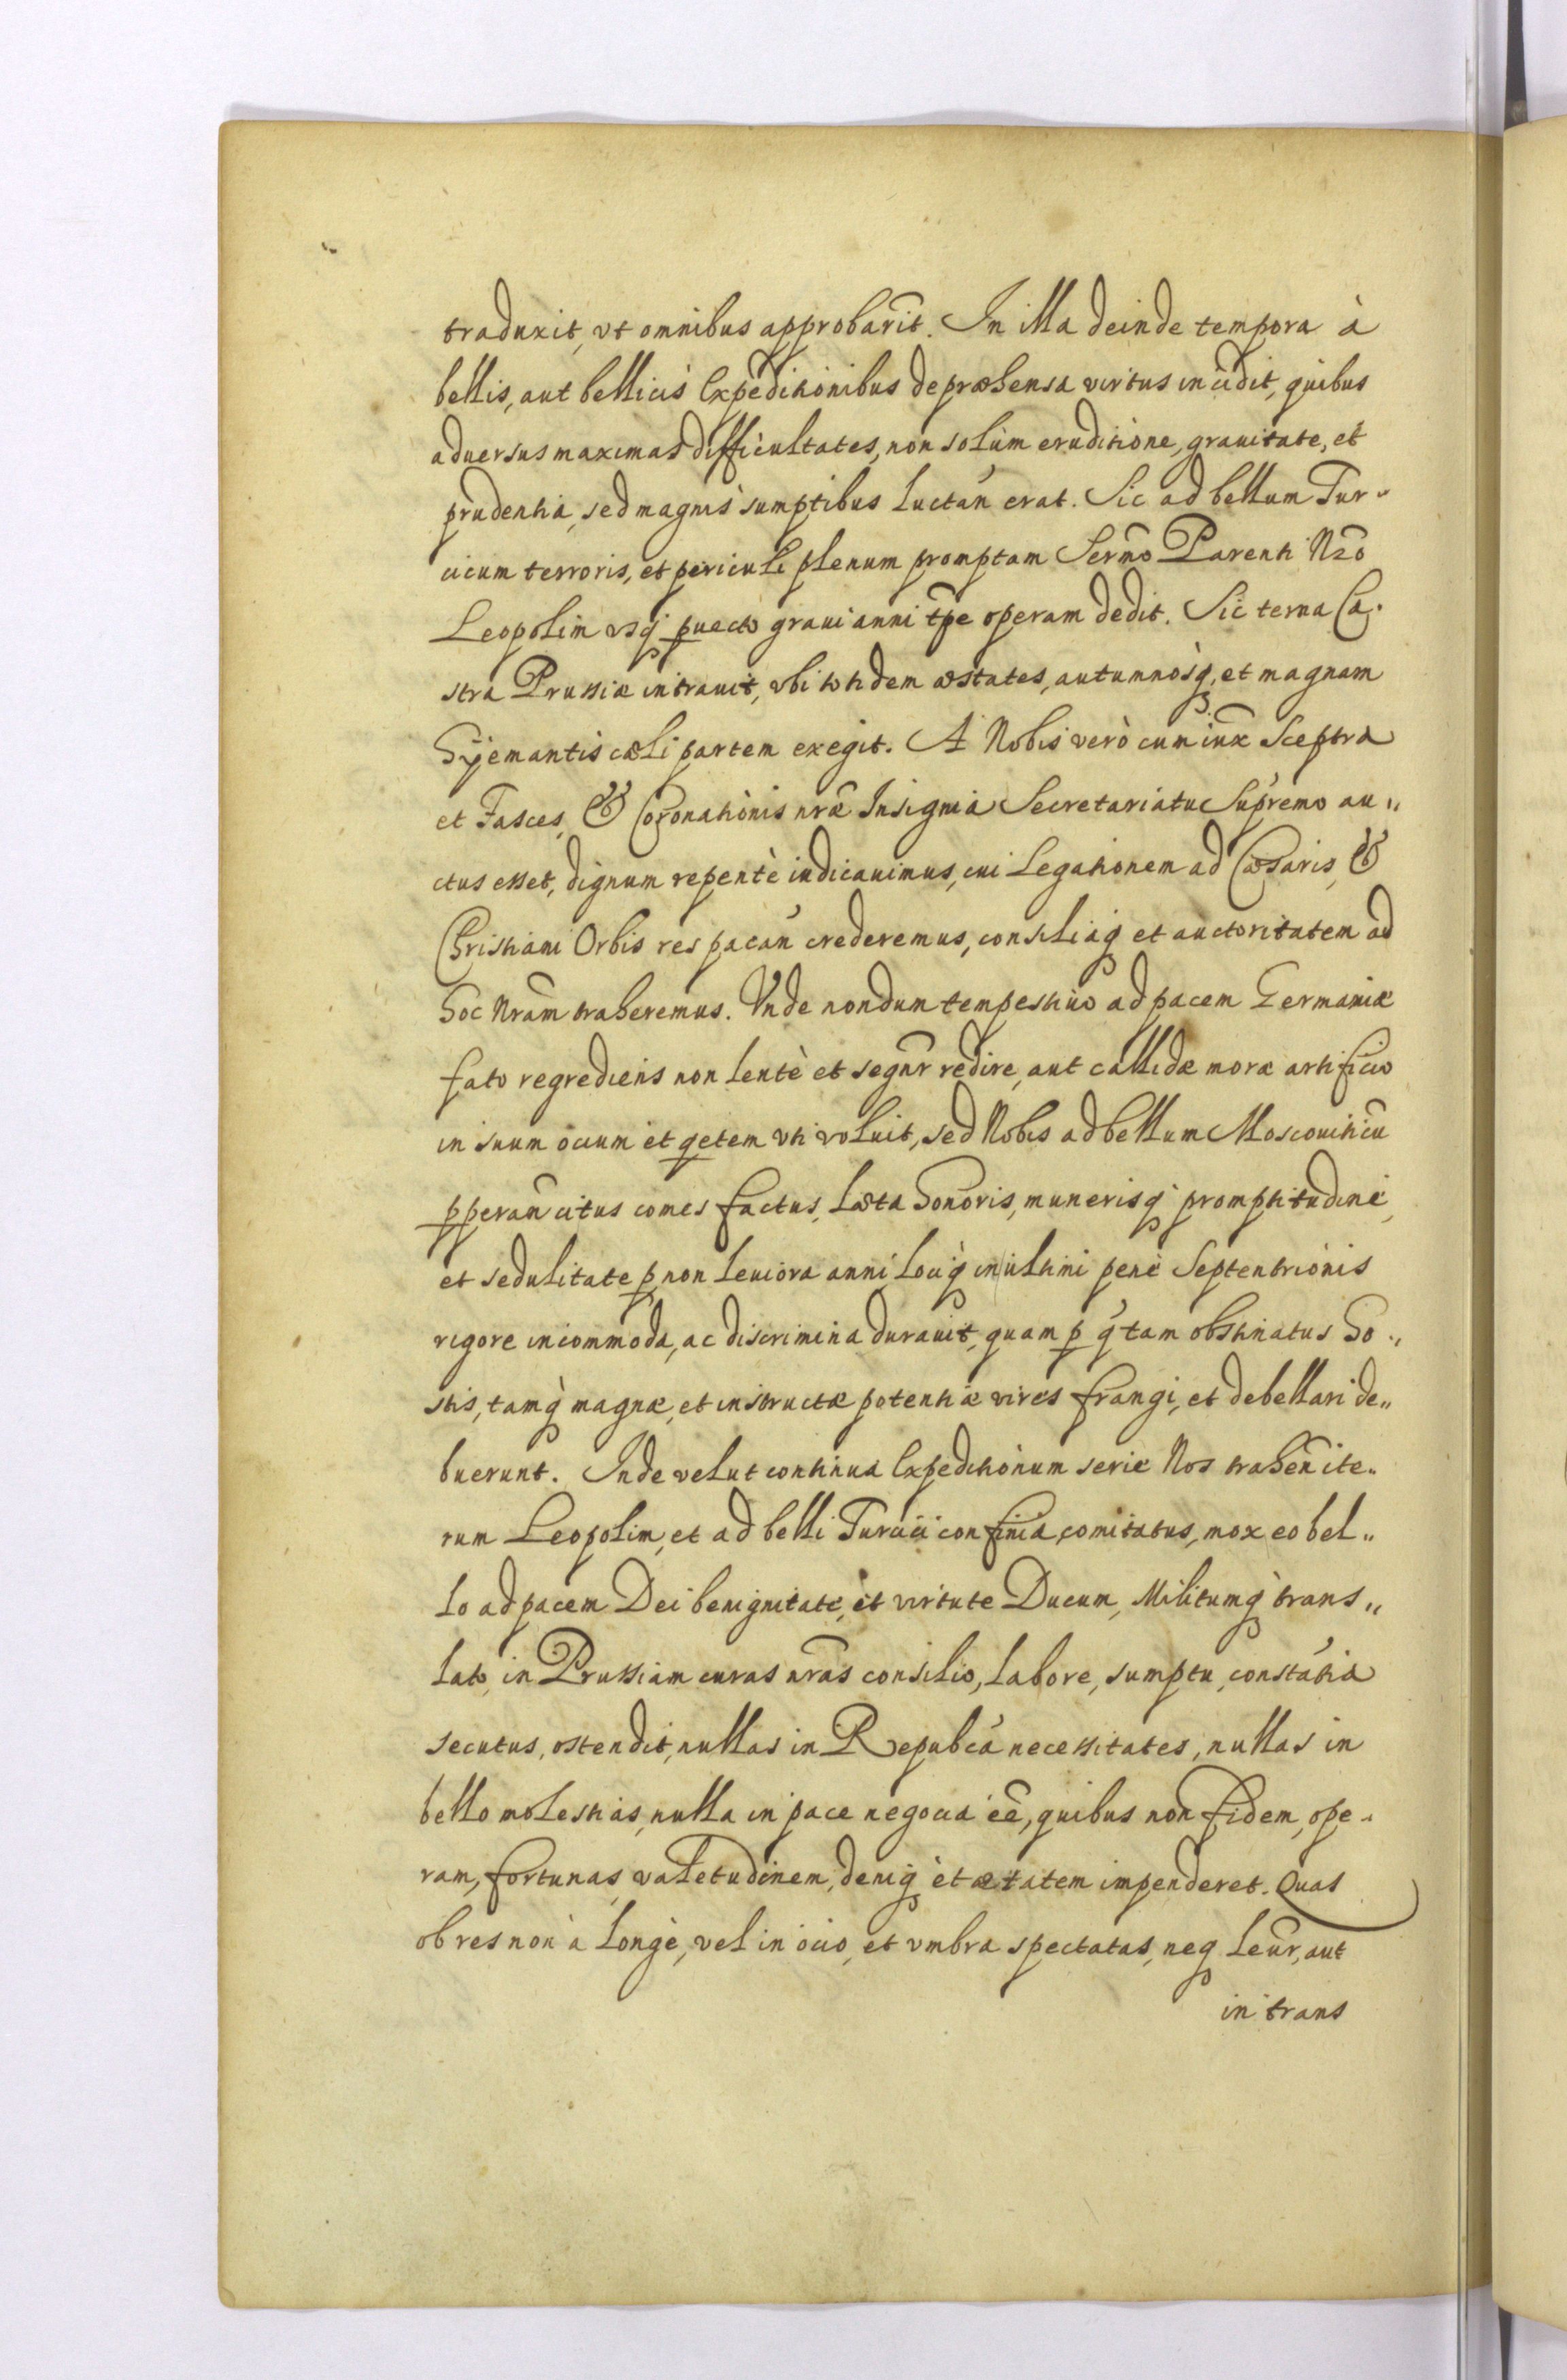 traduxit, vt omnibus approbarit. In illa deinde tempora à
bellis, aut bellicis Expeditionibus depræhensa virtus incidit, quibus
aduersus maximas difficultates, non solùm eruditione, grauitate, et
prudentia, sed magnis sumptibus luctan̄ erat. Sic ad bellum Tur-
cicum terroris, et periculi plenum promptam Sermo Parenti Nro
Leopolim vsq̨ puecto graui anni tp̄e operam dedit. Sic terna Ca-
stra Prussiæ intrauit, vbi totidem æstates, autumnosq̨, et magnam
Hyemantis cæli partem exegit. A Nobis verò cum iux̄ Sceptra
et Fasces, & Coronationis nr̄æ Insignia Secretariatu Supremo au„
ctus esset, dignum repentè iudicauimus, cui Legationem ad Cæsaris, &
Christiani Orbis res pacan̄ crederemus, consiliaq̨ et auctoritatem ad
hoc Nram̄ traheremus. Vnde nondum tempestiuo ad pacem Germaniæ
fato regrediens non lentè et segnr̄ redire, aut callidæ moræ artificio
in suum ocium et qetem vti voluit, sed Nobis ad bellum Moscouiticū
pperan̄ citus comes factus, læta honoris, munerisq̨ promptitudine,
et sedulitate p non leuiora anni, lociq̨ in vltimi penè Septentrionis
rigore incommoda, ac discrimina durauit, quam p q̄ tam obstinatus Ho„
stis, tamq̨ magnæ, et instructæ potentiæ vires frangi, et debellari de„
buerunt. Inde velut continua Expeditionum serie Nos trahen̄ ite„
rum Leopolim, et ad belli Turcici confinia comitatus, mox eo bel„
lo ad pacem Dei benignitate, et virtute Ducum, Militumq̨ trans„
lato, in Prussiam curas nras̄ consilio, labore, sumptu, constātia
secutus, ostendit, nullas in Repubcā necessitates, nullas in
bello molestias, nulla in pace negocia eē, quibus non fidem, ope-
ram, fortunas, valetudinem, deniq̨ et ætatem impenderet. Quas
ob res non à longè, vel in ocio, et vmbra spectatas, neq̨ leur̄, aut
in trans